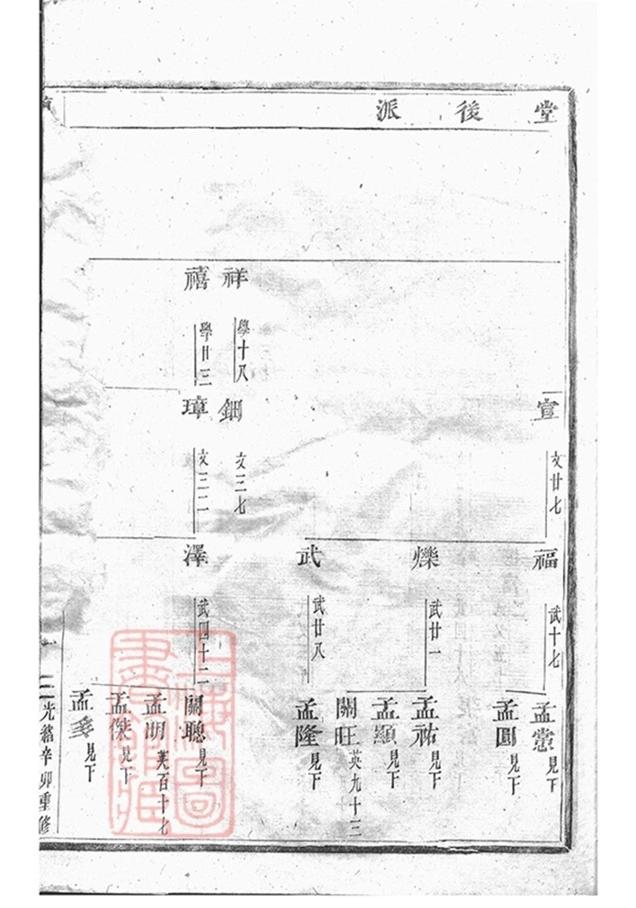 堂後派
宣 文廿七
福 武十七
孟常 見下
孟圓 見下
爍 武廿一
孟祐 見下
孟顯 見下
關旺 英九十三
武 武廿八
孟隆 見下
祥 學十八
鈿 文三七
禧 學廿三
璋 文三二
澤 武四十二
關聰 見下
孟明 英百十七
孟傑 見下
孟 見下
光緒辛卯重修